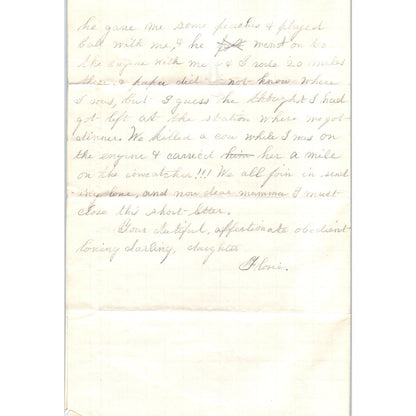 he gave me some peaches & played
ball with me, & he went on to
the engine with me & I rode 20 miles
then & papa did not know where
I was, but I guess he thought I had
got left at the station where we got
dinner. We killed a cow while I was on
the engine & carried him her a mile
on the cowcatcher!!! We all join in send
ing love, and now dear mamma I must
close this short letter.
Your dutiful, affectionate obedient
loving darling, daughter